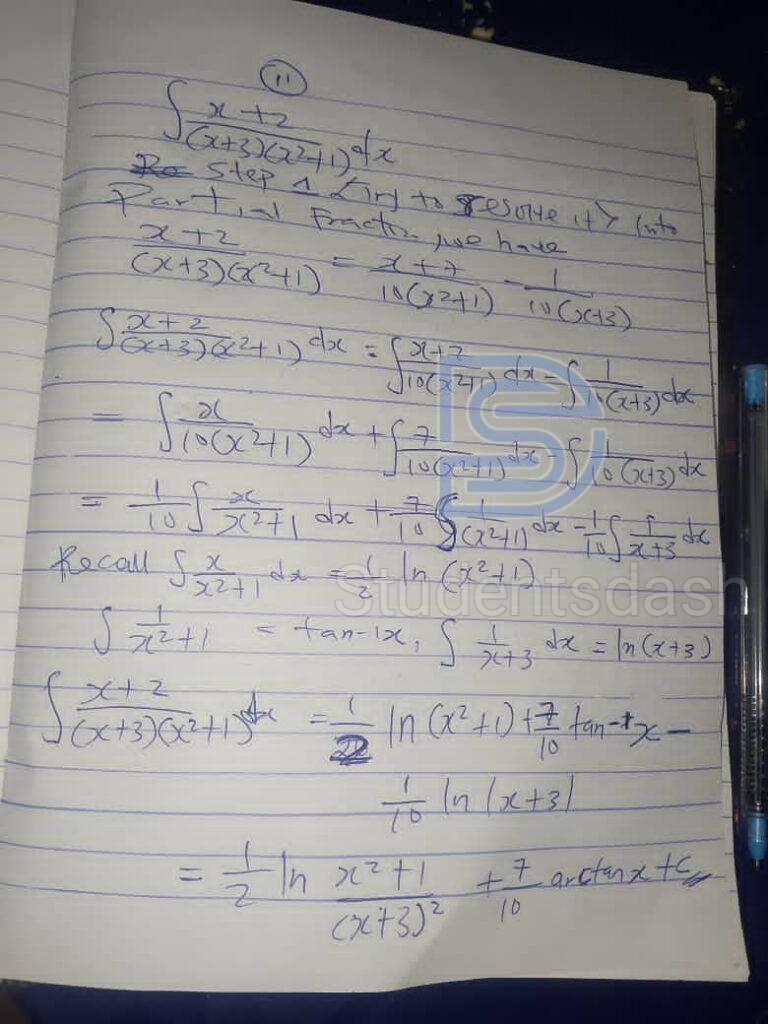 11
∫ x+2 / (x+3)(x²+1) dx
Step 1 try to resolve it into
Partial Fractn, we have
x+2 / (x+3)(x²+1) = x+7 / 10(x²+1) - 1 / 10(x+3)
∫ x+2 / (x+3)(x²+1) dx = ∫ x+7 / 10(x²+1) dx - ∫ 1 / 10(x+3) dx
= ∫ x / 10(x²+1) dx + ∫ 7 / 10(x²+1) dx - ∫ 1 / 10(x+3) dx
= 1/10 ∫ x / x²+1 dx + 7/10 ∫ 1 / (x²+1) dx - 1/10 ∫ 1 / x+3 dx
Recall ∫ x / x²+1 dx = 1/2 ln (x²+1)
Studentsdash
∫ 1 / x²+1 = tan-1x, ∫ 1 / x+3 dx = ln(x+3)
∫ x+2 / (x+3)(x²+1) dx = 1/2 ln (x²+1) + 7/10 tan-1x -
1/10 ln |x+3|
= 1/2 ln x²+1 / (x+3)² + 7/10 arctanx + C